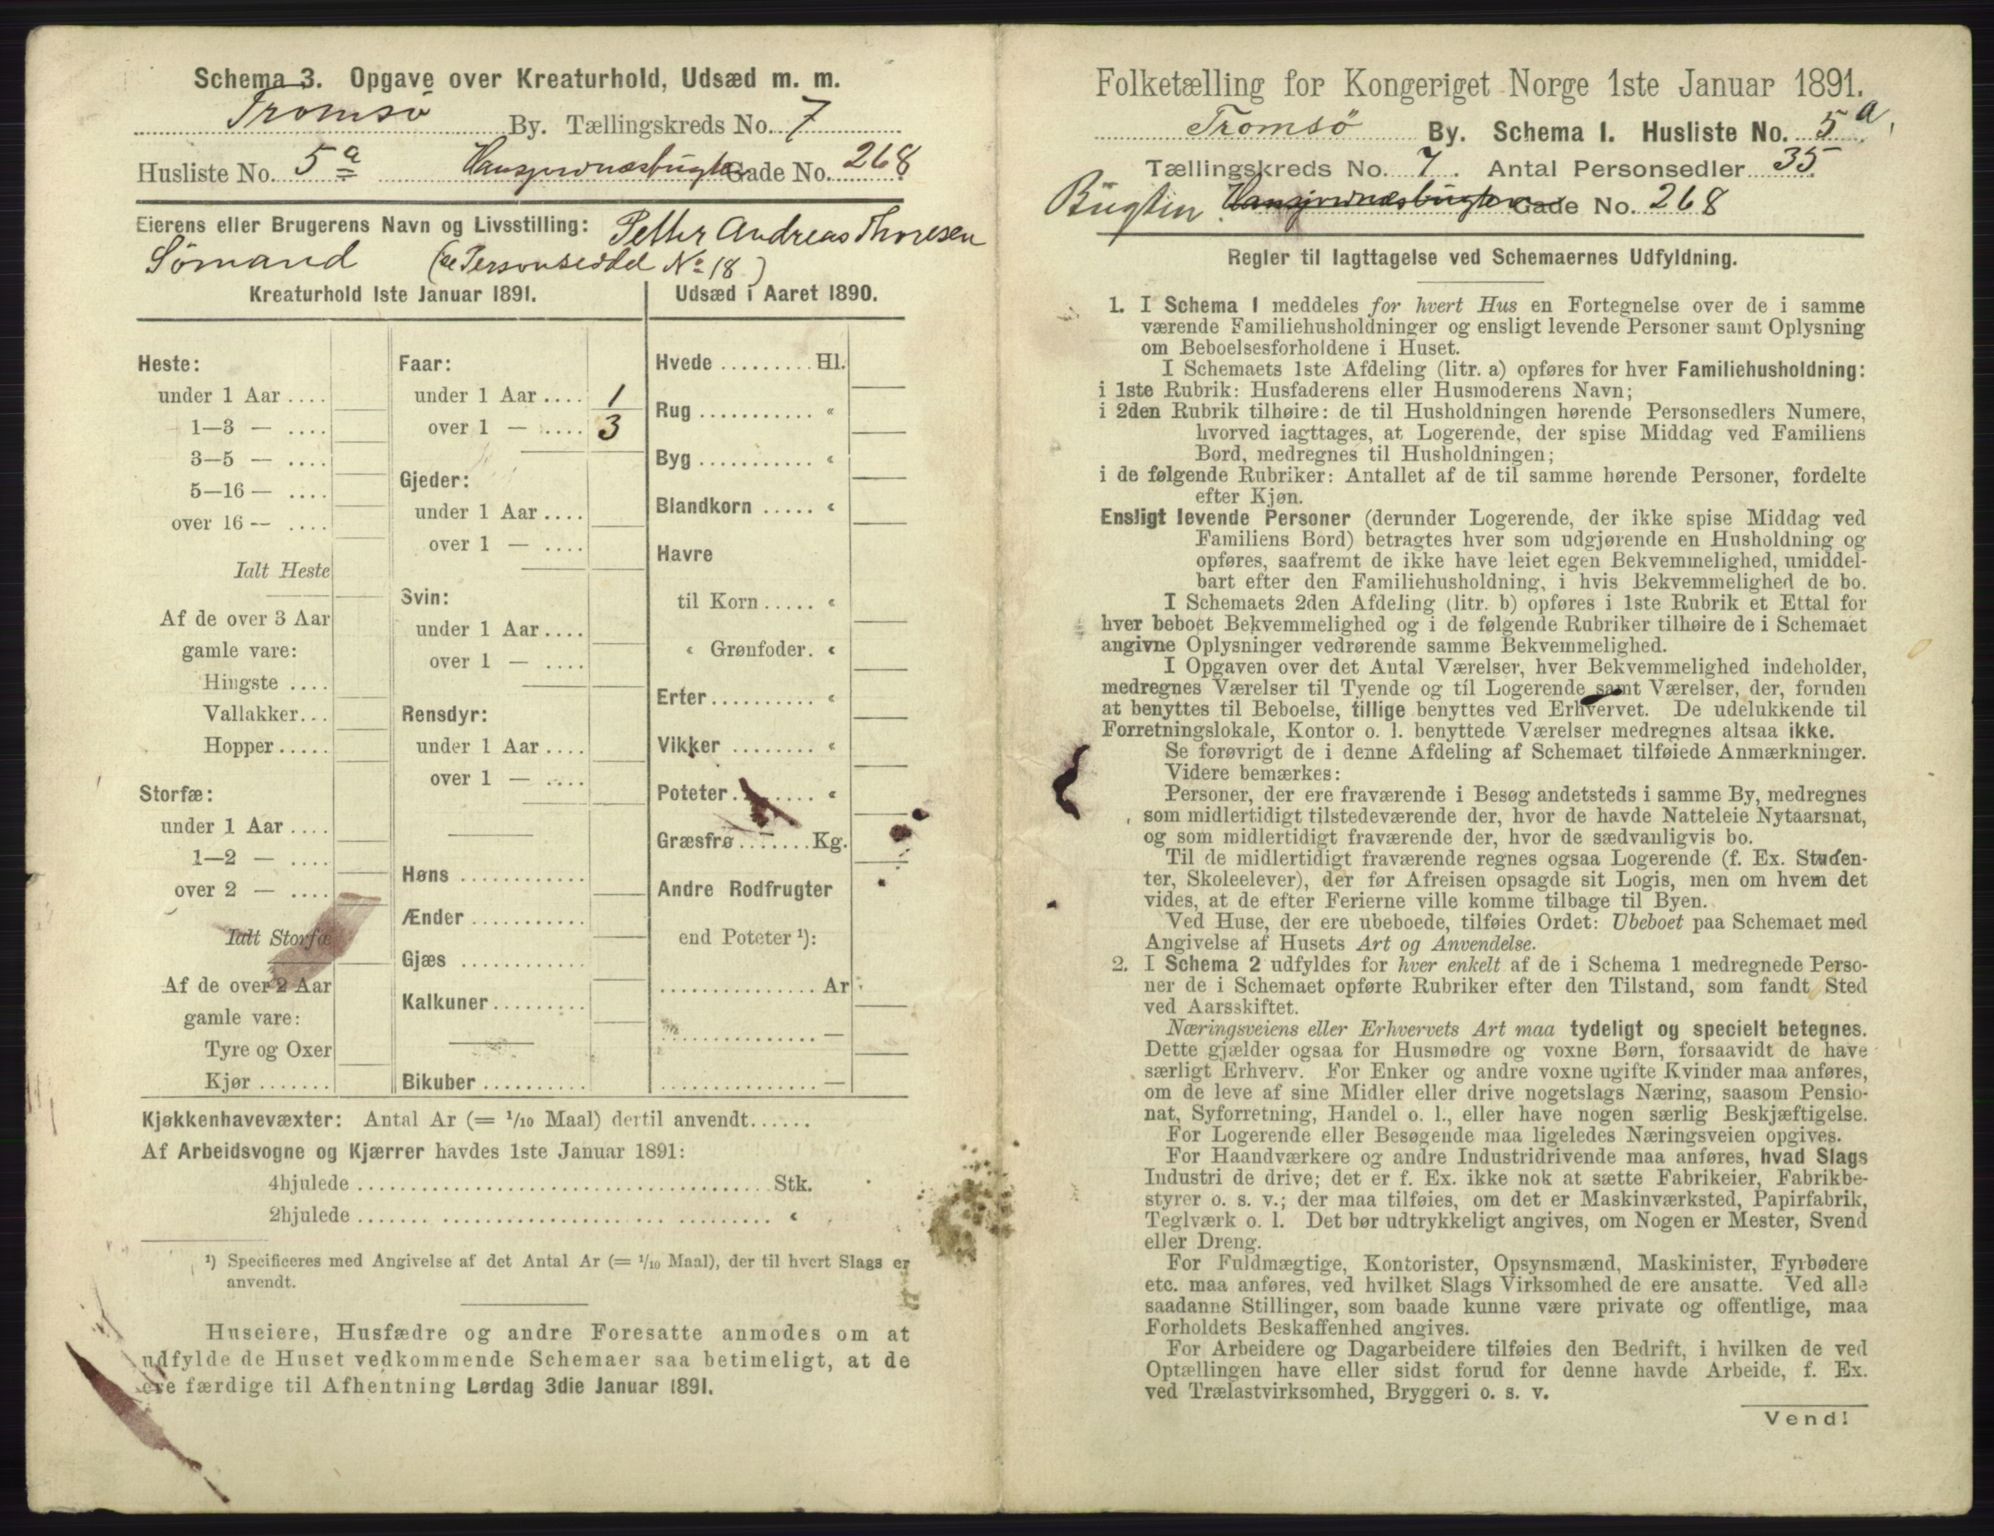 Schema 3. Opgave over Kreaturhold, Udsæd m. m.
Tromsö By. Tællingskreds No. 7
Husliste No. 5a Hansjordnæsbugten Gade No. 268
Eierens eller Brugerens Navn og Livsstilling: Petter Andreas Thoresen
Sømand (se Personseddel No 18)
Kreaturhold 1ste Januar 1891.
Heste:
under 1 Aar ....
1—3 — ....
3—5 — ....
5—16 — ....
over 16 -- ....
Ialt Heste
Af de over 3 Aar
gamle vare:
Hingste ....
Vallakker...
Hopper.....
Storfæ:
under 1 Aar ....
1—2 — ....
over 2 — ....
Ialt Storfæ
Af de over 2 Aar
gamle vare:
Tyre og Oxer
Kjør .......
Faar:
under 1 Aar .... 1
over 1 — .... 3
Gjeder:
under 1 Aar ....
over 1 — ....
Svin:
under 1 Aar....
over 1 — ....
Rensdyr:
under 1 Aar....
over 1 — ....
Høns ............
Ænder ..........
Gjæs ............
Kalkuner.........
Bikuber ..........
Udsæd i Aaret 1890.
Hvede ......... Hl.
Rug ........... «
Byg ........... «
Blandkorn ..... «
Havre
til Korn ..... «
« Grønfoder. «
Erter.......... «
Vikker ........ «
Poteter........ «
Græsfrø....... Kg.
Andre Rodfrugter
end Poteter ¹):
............... Ar
............... —
............... —
Kjøkkenhavevæxter: Antal Ar (= 1/10 Maal) dertil anvendt......
Af Arbeidsvogne og Kjærrer havdes 1ste Januar 1891:
4hjulede ....................................... Stk.
2hjulede ....................................... «
¹) Specificeres med Angivelse af det Antal Ar (= 1/10 Maal), der til hvert Slags er
anvendt.
Huseiere, Husfædre og andre Foresatte anmodes om at
udfylde de Huset vedkommende Schemaer saa betimeligt, at de
ere færdige til Afhentning Lørdag 3die Januar 1891.
Folketælling for Kongeriget Norge 1ste Januar 1891.
Tromsö By. Schema 1. Husliste No. 5a,
Tællingskreds No. 7. Antal Personsedler 35
Bugten Hansjordnæsbugten Gade No. 268
Regler til Iagttagelse ved Schemaernes Udfyldning.
1. I Schema 1 meddeles for hvert Hus en Fortegnelse over de i samme
værende Familiehusholdninger og ensligt levende Personer samt Oplysning
om Beboelsesforholdene i Huset.
I Schemaets 1ste Afdeling (litr. a) opføres for hver Familiehusholdning:
i 1ste Rubrik: Husfaderens eller Husmoderens Navn;
i 2den Rubrik tilhøire: de til Husholdningen hørende Personsedlers Numere,
hvorved iagttages, at Logerende, der spise Middag ved Familiens
Bord, medregnes til Husholdningen;
i de følgende Rubriker: Antallet af de til samme hørende Personer, fordelte
efter Kjøn.
Ensligt levende Personer (derunder Logerende, der ikke spise Middag ved
Familiens Bord) betragtes hver som udgjørende en Husholdning og
opføres, saafremt de ikke have leiet egen Bekvemmelighed, umiddel-
bart efter den Familiehusholdning, i hvis Bekvemmelighed de bo.
I Schemaets 2den Afdeling (litr. b) opføres i 1ste Rubrik et Ettal for
hver beboet Bekvemmelighed og i de følgende Rubriker tilhøire de i Schemaet
angivne Oplysninger vedrørende samme Bekvemmelighed.
I Opgaven over det Antal Værelser, hver Bekvemmelighed indeholder,
medregnes Værelser til Tyende og til Logerende samt Værelser, der, foruden
at benyttes til Beboelse, tillige benyttes ved Erhvervet. De udelukkende til
Forretningslokale, Kontor o. l. benyttede Værelser medregnes altsaa ikke.
Se forøvrigt de i denne Afdeling af Schemaet tilføiede Anmærkninger.
Videre bemærkes:
Personer, der ere fraværende i Besøg andetsteds i samme By, medregnes
som midlertidigt tilstedeværende der, hvor de havde Natteleie Nytaarsnat,
og som midlertidigt fraværende der, hvor de sædvanligvis bo.
Til de midlertidigt fraværende regnes ogsaa Logerende (f. Ex. Studen-
ter, Skoleelever), der før Afreisen opsagde sit Logis, men om hvem det
vides, at de efter Ferierne ville komme tilbage til Byen.
Ved Huse, der ere ubeboede, tilføies Ordet: Ubeboet paa Schemaet med
Angivelse af Husets Art og Anvendelse.
2. I Schema 2 udfyldes for hver enkelt af de i Schema 1 medregnede Perso-
ner de i Schemaet opførte Rubriker efter den Tilstand, som fandt Sted
ved Aarsskiftet.
Næringsveiens eller Erhvervets Art maa tydeligt og specielt betegnes.
Dette gjælder ogsaa for Husmødre og voxne Børn, forsaavidt de have
særligt Erhverv. For Enker og andre voxne ugifte Kvinder maa anføres,
om de leve af sine Midler eller drive nogetslags Næring, saasom Pensio-
nat, Syforretning, Handel o. l., eller have nogen særlig Beskjæftigelse.
For Logerende eller Besøgende maa ligeledes Næringsveien opgives.
For Haandværkere og andre Industridrivende maa anføres, hvad Slags
Industri de drive; det er f. Ex. ikke nok at sætte Fabrikeier, Fabrikbe-
styrer o. s. v.; der maa tilføies, om det er Maskinværksted, Papirfabrik,
Teglværk o. l. Det bør udtrykkeligt angives, om Nogen er Mester, Svend
eller Dreng.
For Fuldmægtige, Kontorister, Opsynsmænd, Maskinister, Fyrbødere
etc. maa anføres, ved hvilket Slags Virksomhed de ere ansatte. Ved alle
saadanne Stillinger, som baade kunne være private og offentlige, maa
Forholdets Beskaffenhed angives.
For Arbeidere og Dagarbeidere tilføies den Bedrift, i hvilken de ved
Optællingen have eller sidst forud for denne havde Arbeide, f. Ex.
ved Trælastvirksomhed, Bryggeri o. s. v.
Vend!